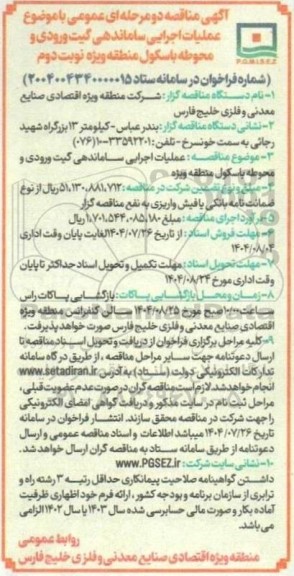 آگهی مناقصه دو مرحله ای عمومی با موضوع
عملیات اجرایی ساماندهی گیت ورودی و
محوطه باسکول منطقه ویژه نوبت دوم
P.G.M.I.S.E.Z
(شماره فراخوان در سامانه ستاد ۲۰۰۴۰۰۴۳۴۰۰۰۰۱۵)
۱-نام دستگاه مناقصه گزار: شرکت منطقه ویژه اقتصادی صنایع
معدنی و فلزی خلیج فارس
۲-نشانی دستگاه مناقصه گزار: بندرعباس-کیلومتر ۱۳ بزرگراه شهید
رجائی به سمت خونسرخ-تلفن: ۱۰-۳۳۵۹۲۲۰۱(۰۷۶)
۳-موضوع مناقصه: عملیات اجرایی ساماندهی گیت ورودی و
محوطه باسکول منطقه ویژه
۴-مبلغ و نوع تضمین شرکت در مناقصه: ۵۱,۱۳۰,۸۸۱,۷۷۲ ریال از نوع
ضمانت نامه بانکی یا فیش واریزی به نفع مناقصه گزار
۵-برآورد اجرای مناقصه: مبلغ ۱,۷۰۱,۵۴۴,۰۸۵,۱۸۰ ریال
۶-مهلت فروش اسناد: از تاریخ ۱۴۰۴/۰۷/۲۶ لغایت پایان وقت اداری
۱۴۰۴/۰۸/۰۴
۷-مهلت تحویل اسناد: مهلت تکمیل و تحویل اسناد حداکثر تا پایان
وقت اداری مورخ ۱۴۰۴/۰۸/۲۴
۸-زمان و محل بازگشایی پاکات: بازگشایی پاکات راس
ساعت ۱۰:۰۰ صبح مورخ ۱۴۰۴/۰۸/۲۵ سالن کنفرانس منطقه ویژه
اقتصادی صنایع معدنی و فلزی خلیج فارس صورت خواهد پذیرفت.
۹-کلیه مراحل برگزاری فراخوان از دریافت و تحویل اسناد مناقصه تا
ارسال دعوتنامه جهت سایر مراحل مناقصه، از طریق درگاه سامانه
تدارکات الکترونیکی دولت (ستاد) به آدرس www.setadiran.ir
انجام خواهد شد. لازم است مناقصه گران در صورت عدم عضویت قبلی،
مراحل ثبت نام در سایت مذکور و دریافت گواهی امضای الکترونیکی
را جهت شرکت در مناقصه محقق سازند. انتشار فراخوان در سامانه
تاریخ ۱۴۰۴/۰۷/۲۶ میباشد اطلاعات و اسناد مناقصه عمومی و ارسال
دعوتنامه از طریق سامانه ستاد به مناقصه گران ارسال خواهد شد.
۱۰-نشانی سایت شرکت: www.PGSEZ.ir
داشتن گواهینامه صلاحیت پیمانکاری حداقل رتبه ۳ رشته راه و
ترابری از سازمان برنامه و بودجه کشور، ارائه فرم خود اظهاری ظرفیت
آماده بکار و صورت مالی حسابرسی شده سال ۱۴۰۳ یا سال ۱۴۰۲ الزامی
می باشد.
روابط عمومی
منطقه ویژه اقتصادی صنایع معدنی و فلزی خلیج فارس